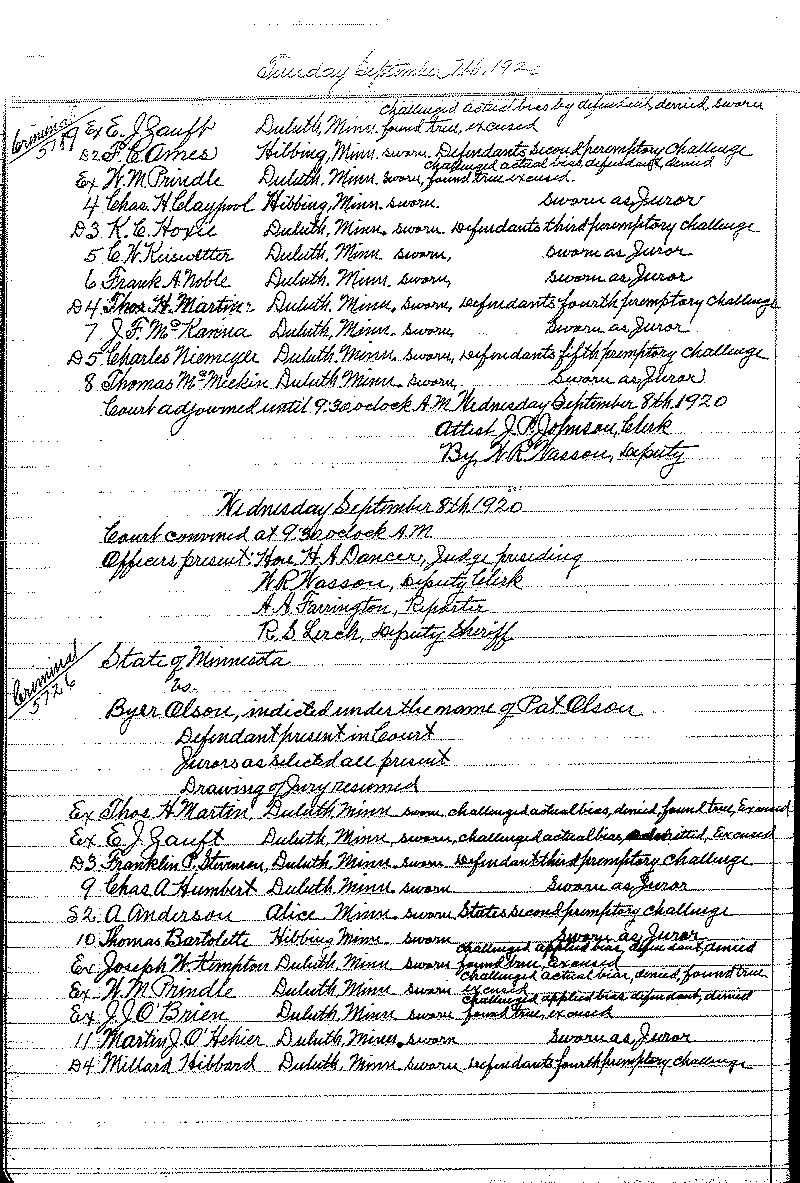 Tuesday September 7th, 192
challenged actual bias by defendant, denied, sworn
Criminal 5789
Ex E. J. Gauft Duluth, Minn. found true, excused
D2 F. C. Ames Hibbing, Minn. sworn. Defendants second peremptory challenge
challenged actual bias, defendant, denied
Ex W. M. Prindle Duluth, Minn. sworn, found true excused.
4 Chas. H Claypool Hibbing, Minn. sworn Sworn as Juror
D3 K. C. Hoxie Duluth, Minn. sworn Defendants third peremptory challenge
5 C. W. Duluth, Minn sworn, sworn as Juror
6 Frank A. Noble Duluth. Minn sworn, sworn as Juror
D4 Thos. H. Martin Duluth, Minn. sworn, Defendants fourth premptory challenge
7 J. F. McKanna Duluth, Minn. sworn Sworn as Juror
D5 Charles Niemeyer Duluth. Minn. sworn, Defendants fifth premptory challenge
8 Thomas McMickin Duluth. Minn. sworn, Sworn as Juror
Court adjourned until 9:30 oclock A.M Wednesday September 8th, 1920
Attest J. P. Johnson, Clerk
By, W. R. Wasson, Deputy
Wednesday September 8th 1920
Court convened at 9:30 oclock A.M.
Officers present: Hon. H. A Dancer, Judge presiding
W. R. Wasson, Deputy Clerk
A. A. Farrington, Reporter
R. S Lerch, Deputy Sheriff
Criminal 5726
State of Minnesota
vs.
Byer Olson, indicted under the name of Pat Olson
Defendant present in Court
Jurors as selected all present
Drawing of Jury resumed
Ex Thos. H Martin Duluth, Minn sworn challenged actual bias, denied, found true, Excused
Ex E. J. Gauft Duluth, Minn sworn, challenged actual bias, admitted, Excused
D3 Franklin P. Stevenson, Duluth, Minn. sworn Defendant third premptory challenge
9 Chas A Humbert Duluth, Minn. sworn Sworn as Juror
S2 A Anderson Alice Minn. sworn States second premptory challenge
10 Thomas Bartolette Hibbing Minn. sworn Sworn as Juror
challenged applied bias, defendant, denied
Ex Joseph W. Kimpton Duluth, Minn sworn found true Excused
challenged actual bias, denied, found true
Ex W. M Prindle Duluth, Minn sworn excused
challenged applied bias defendant, denied
Ex J. J. O'Brien Duluth, Minn sworn found true, excused
11 Martin J. O'Hehier Duluth, Minn. sworn Sworn as Juror
D4 Millard Hibbard Duluth, Minn. sworn Defendants fourth premptory challenge